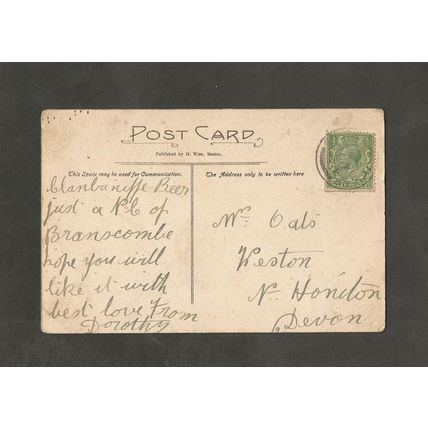 POST CARD
Published by G. Wise, Seaton.
This Space may be used for Communication.
The Address only to be written here
Beer
just a P.C of
Branscombe
hope you will
like it with
best love from
Dorothy
Mr. Oats
Weston
Nr. Honiton
Devon